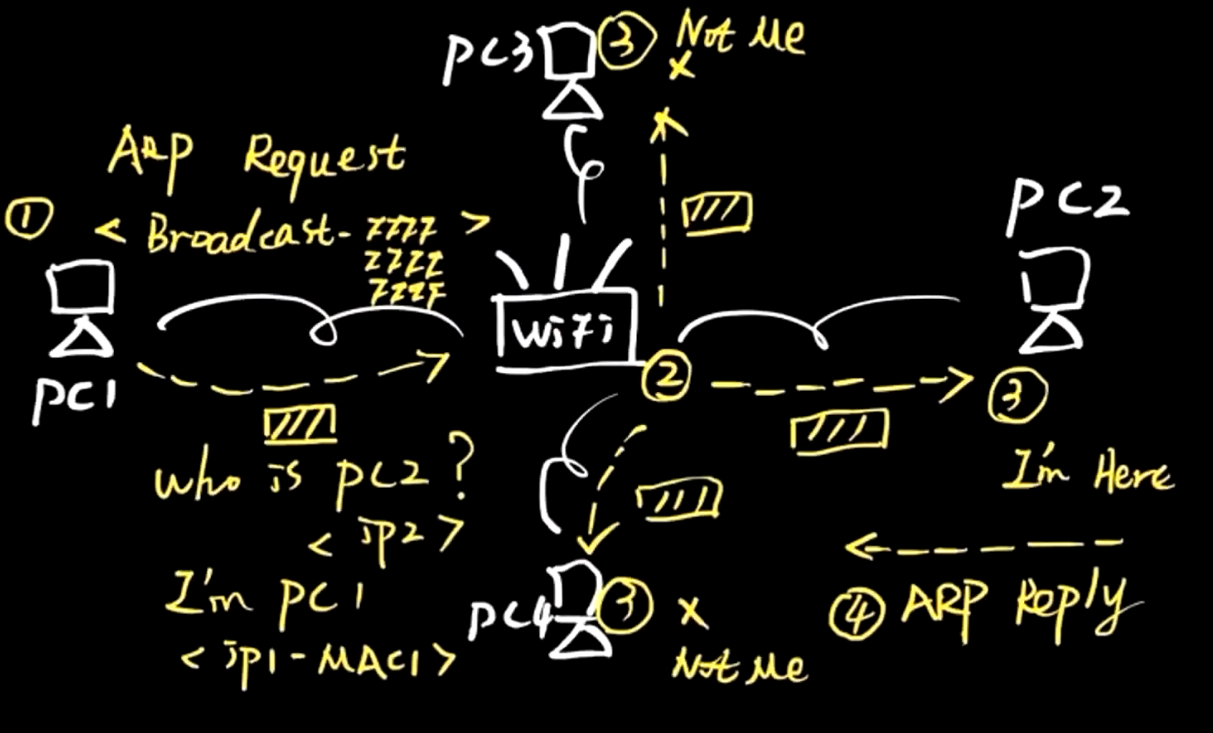 PC3
③ Not Me
×
ARP Request
①
< Broadcast- FFFF >
FFFF
FFFF
PC2
WiFi
PC1
②
③
Who is PC2?
< ip2 >
I'm Here
I'm PC1
< ip1-MAC1 >
PC4
③ ×
Not Me
④ ARP Reply